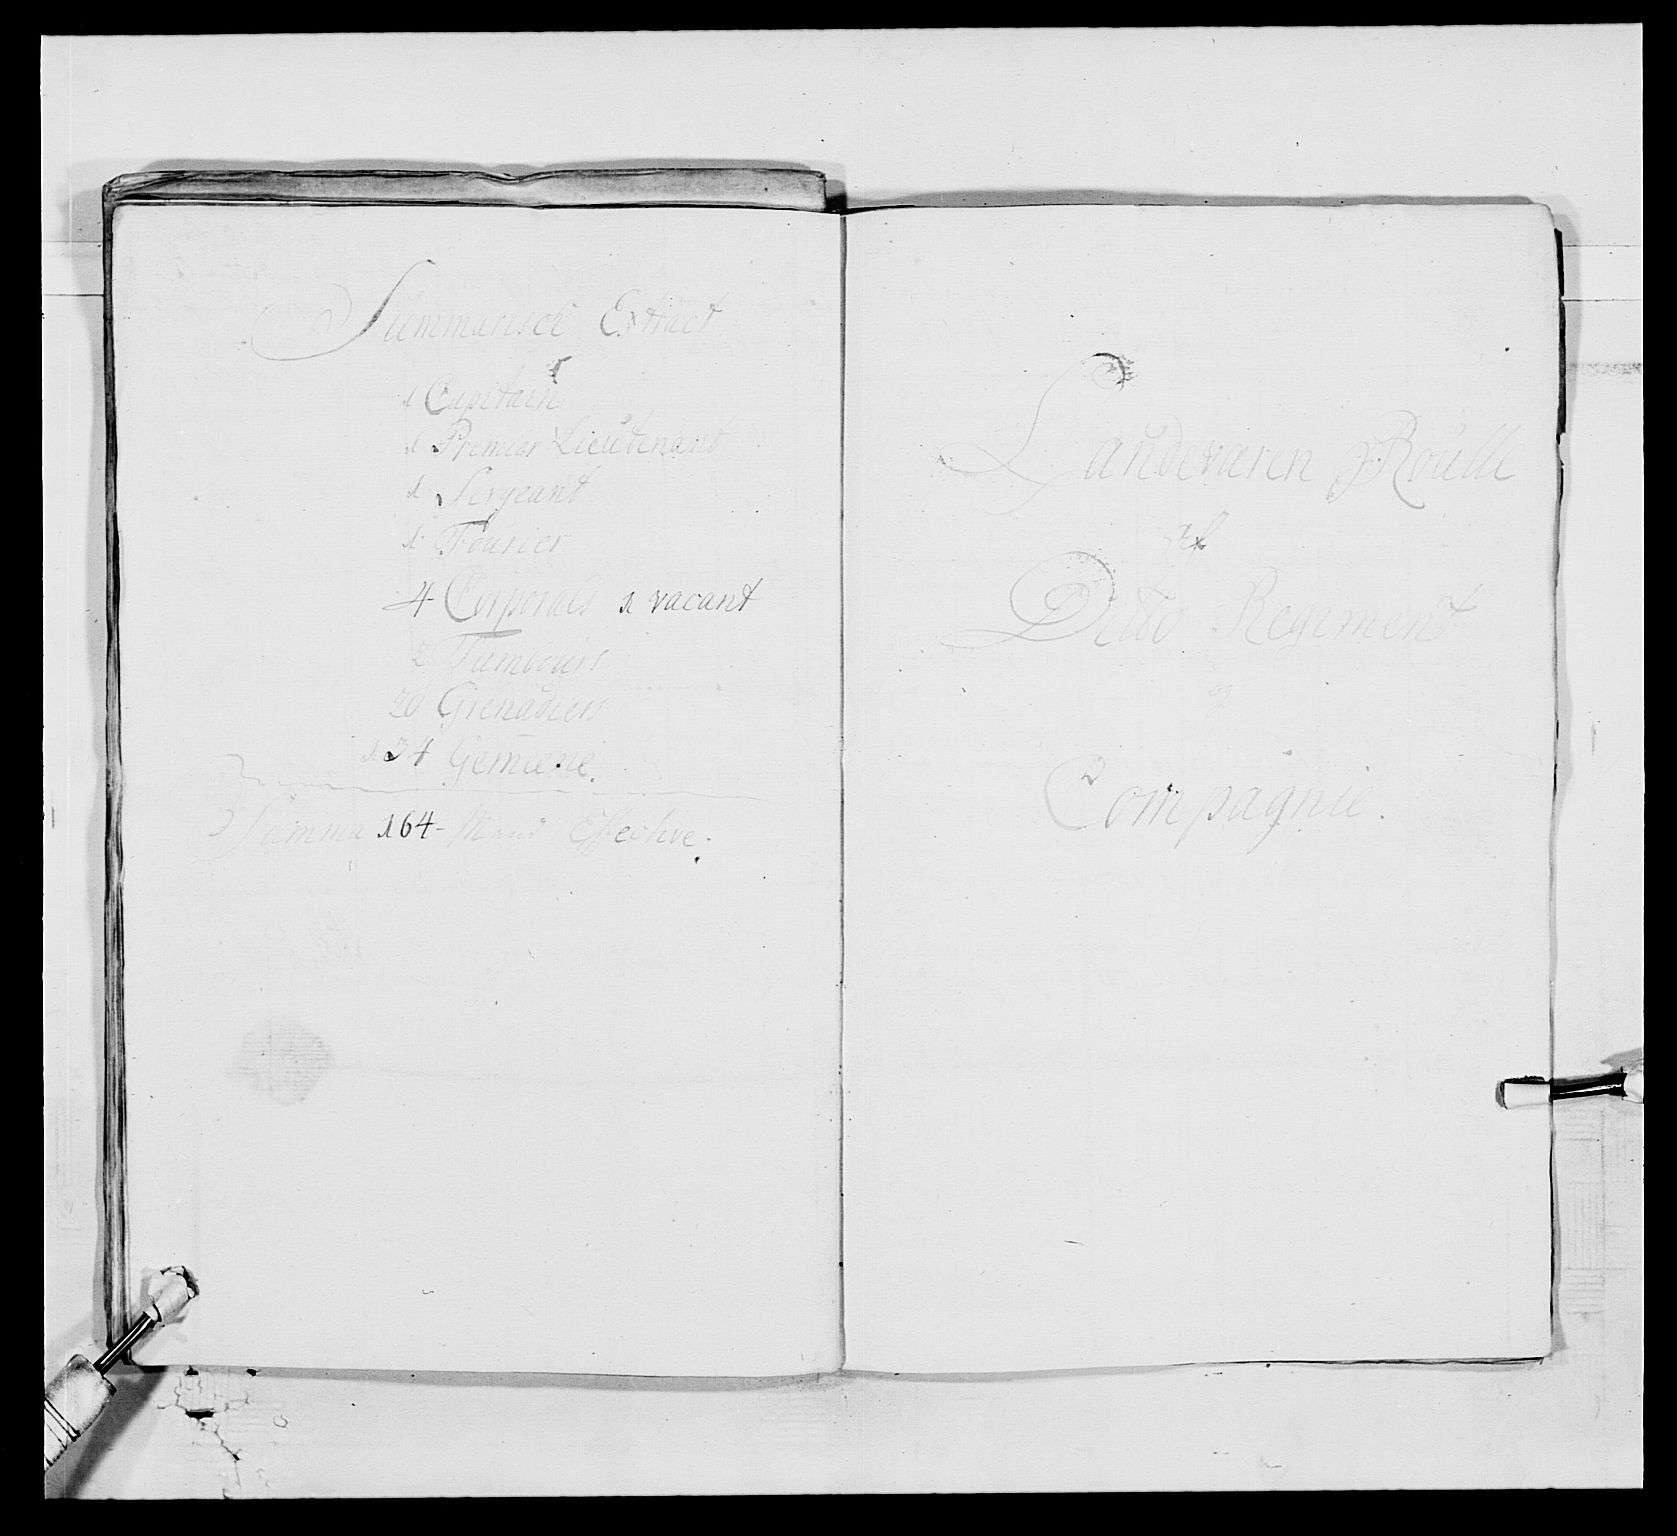 Summarisch Extract
1 Capitain
1 Premier Lieutenant
1 Sergeant
1 Fourier
4 Corporals 1 vacant
2 Tambours
20 Grenadiers
134 Gemeene.
Summa 164 Mand Effective.
Landeværen Roulle
af
Ditto Regiment
og
Compagnie.